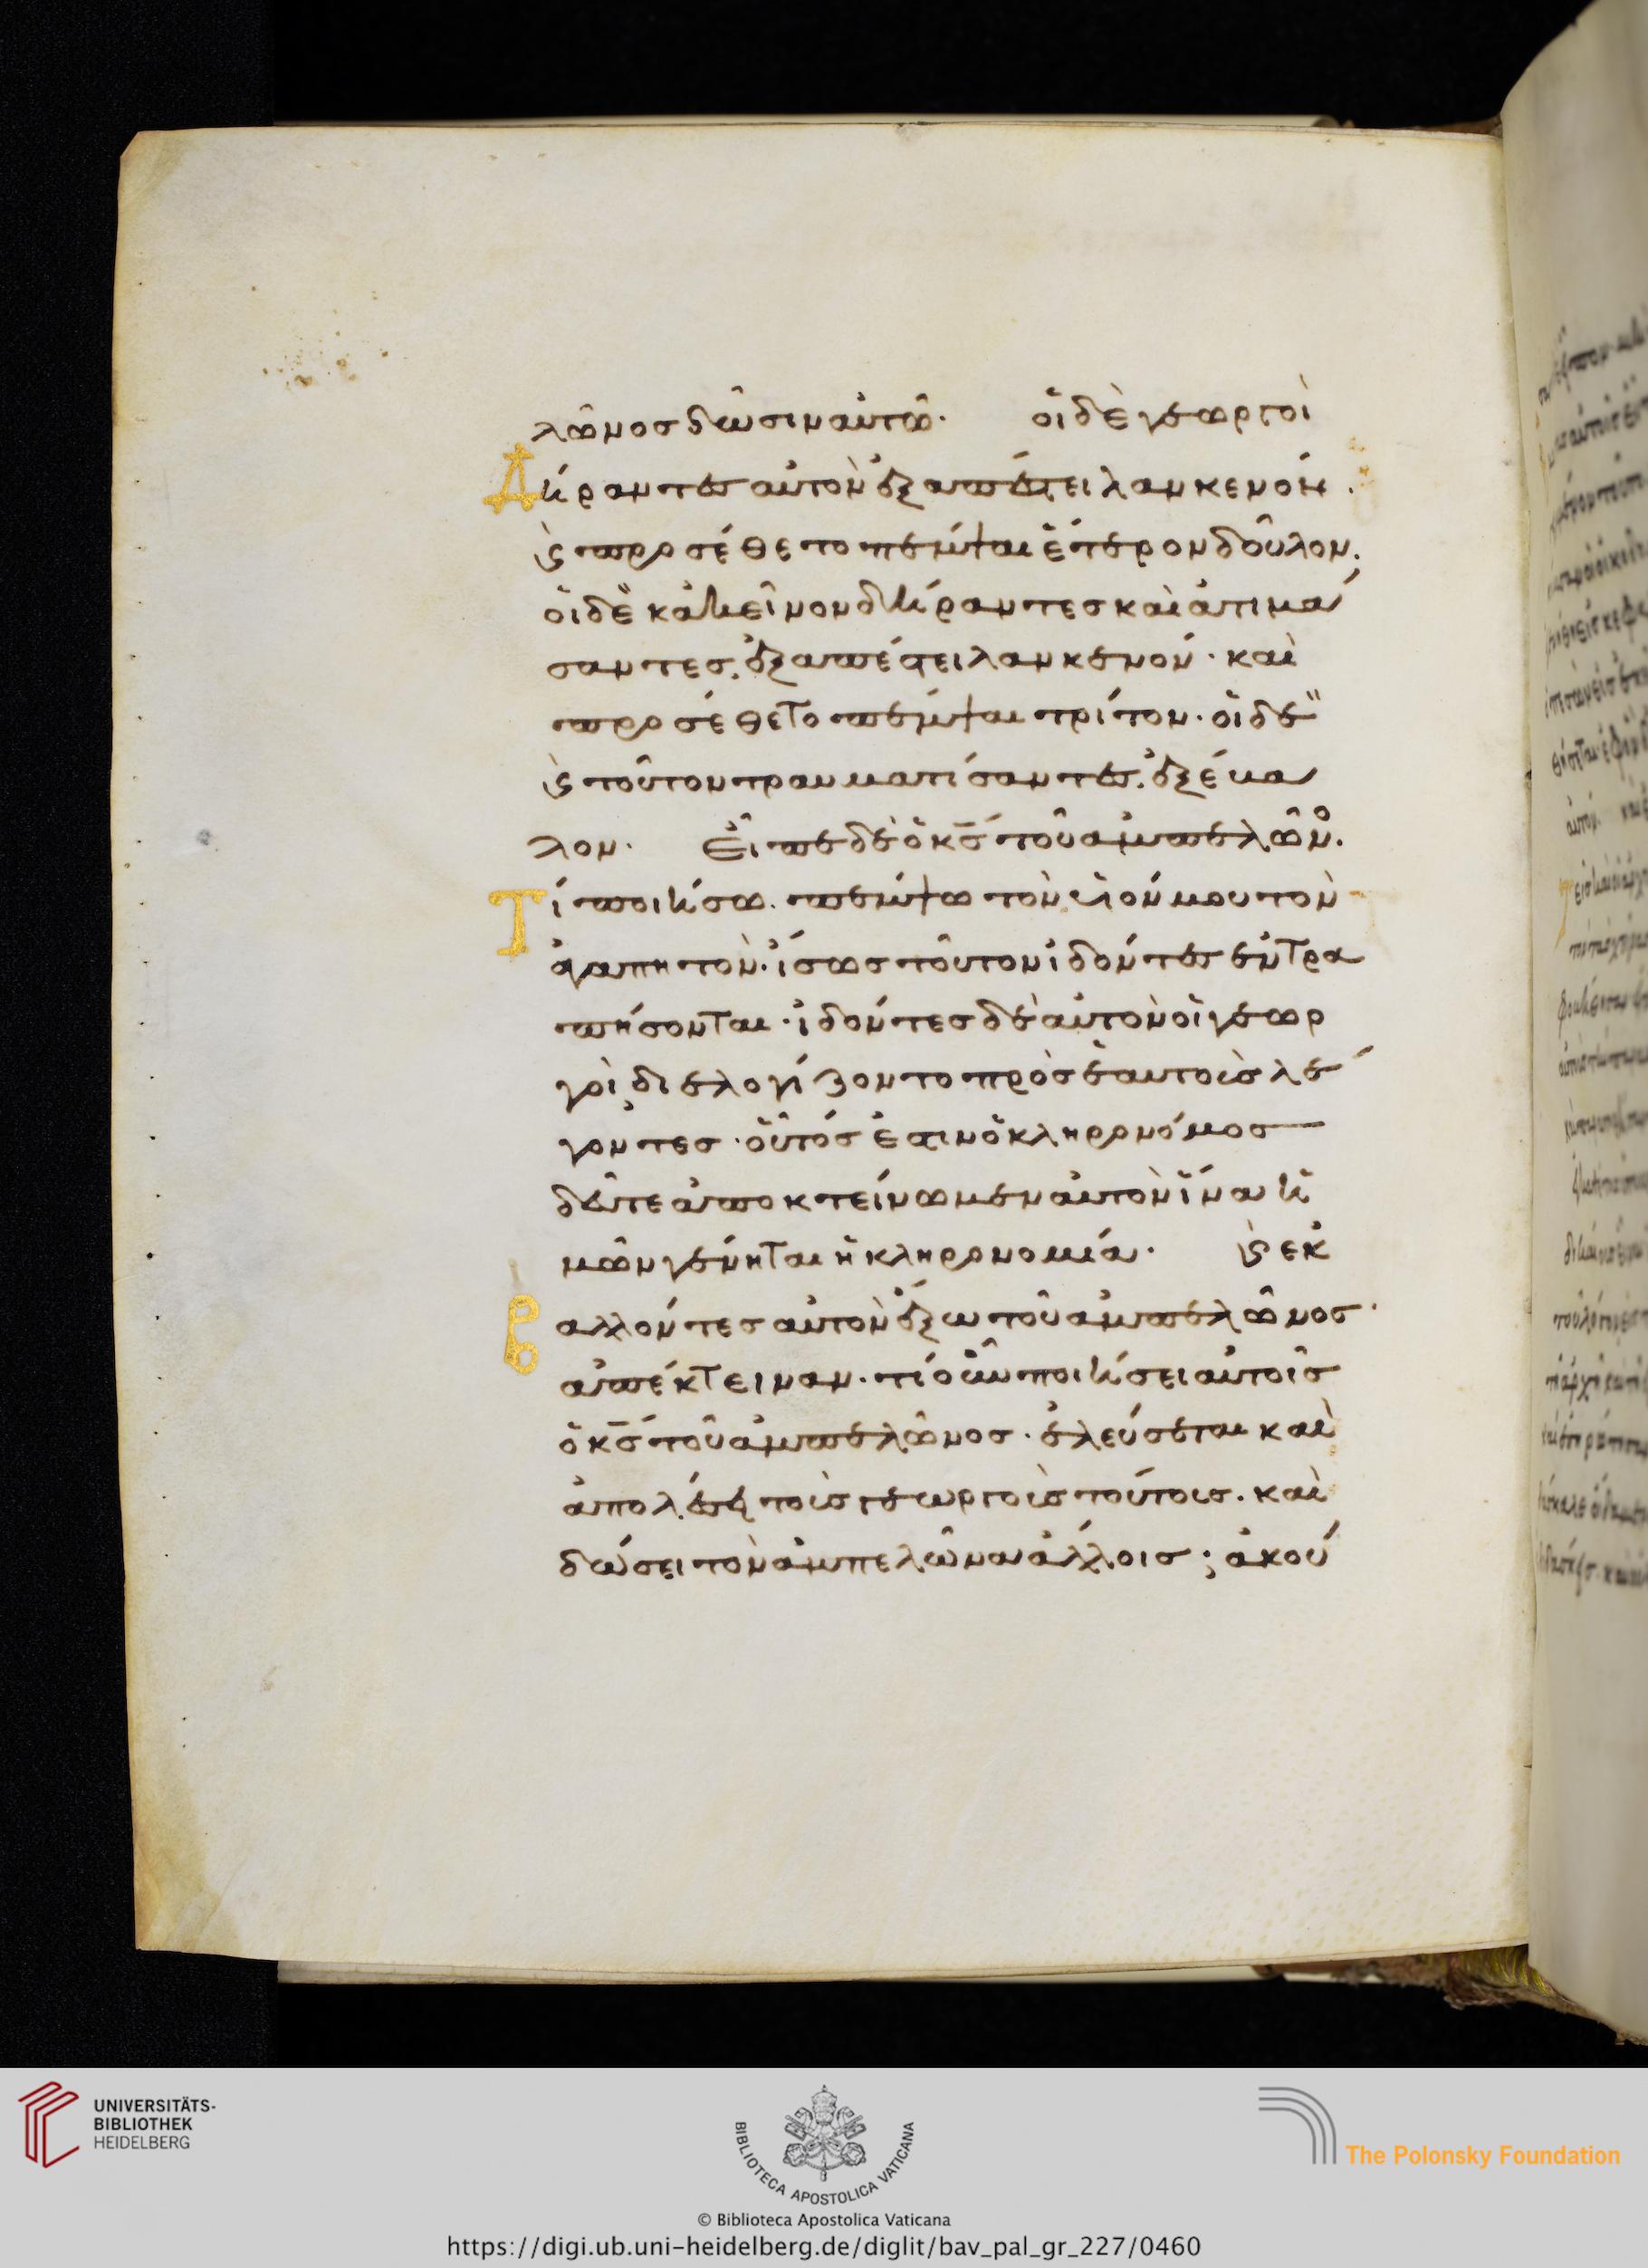 λῶνος δῶσιν αὐτῶ· οἱ δὲ γεωργοὶ
Δήραντες αὐτὸν ἐξαπέστειλαν κενόν.
ϗ προσέθετο πέμψαι ἕτερον δοῦλον.
οἱ δὲ κἀκεῖνον δήραντες καὶ ἀτιμά
σαντες. ἐξαπέστειλαν κενόν· καὶ
προσέθετο πέμψαι τρίτον· οἱ δὲ
ϗ τοῦτον τραυματίσαντες. ἐξέβα
λον· Εἶπε δὲ ὁ κς τοῦ ἀμπελῶνος.
Τί ποιήσω. πέμψω τὸν υἱόν μου τὸν
ἀγαπητὸν· ἴσως τοῦτον ἰδόντες ἐντρα
πήσονται· ἰδόντες δὲ αὐτὸν οἱ γεωρ
γοὶ διελογίζοντο πρὸς ἑαυτοὺς λέ
γοντες· οὗτός ἐστιν ὁ κληρονόμος
δεῦτε ἀποκτείνωμεν αὐτὸν ἵνα ἡ
μῶν γένηται ἡ κληρονομία· ϗ ἐκ
Βαλλόντες αὐτὸν ἔξω τοῦ ἀμπελῶνος·
ἀπέκτειναν· τί οὖν ποιήσει αὐτοῖς
ὁ κς τοῦ ἀμπελῶνος· ἐλεύσεται καὶ
ἀπολέσει τοὺς γεωργοὺς τούτους. καὶ
δώσει τὸν ἀμπελῶνα ἄλλοις; ἀκού
UNIVERSITÄTS-
BIBLIOTHEK
HEIDELBERG
BIBLIOTECA APOSTOLICA VATICANA
The Polonsky Foundation
© Biblioteca Apostolica Vaticana
https://digi.ub.uni-heidelberg.de/diglit/bav_pal_gr_227/0460